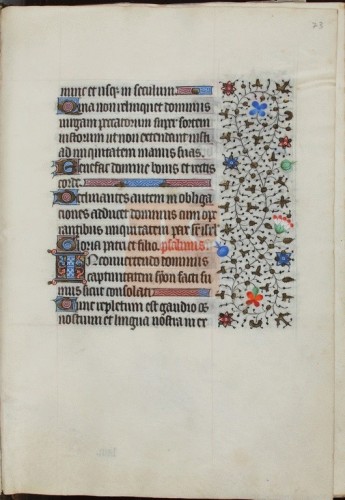 23
nunc et usq; in seculum.
Quia non relinquet dominus
uirgam peccatorum super sortem
iustorum ut non extendant iusti
ad iniquitatem manus suas.
Benefac domine bonis et rectis
corde.
Declinantes autem in obliga
tiones adducet dominus cum ope
rantibus iniquitatem pax sr isrl
Gloria patri et filio. psalmus.
In conuertendo dominus
captiuitatem syon facti su
mus sicut consolati
Tunc repletum est gaudio os
nostrum et lingua nostra in ex